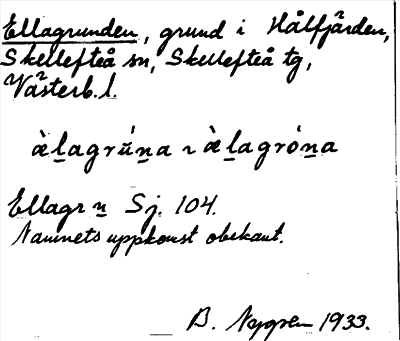 Ellagrunden, grund i Hålfjärden,
Skellefteå sn, Skellefteå tg,
Västerb. l.
àḻagrúṉa ~ àḻagróṉa
Ellagr n̲ Sj. 104.
Namnets uppkomst obekant.
B. Nygren 1933.